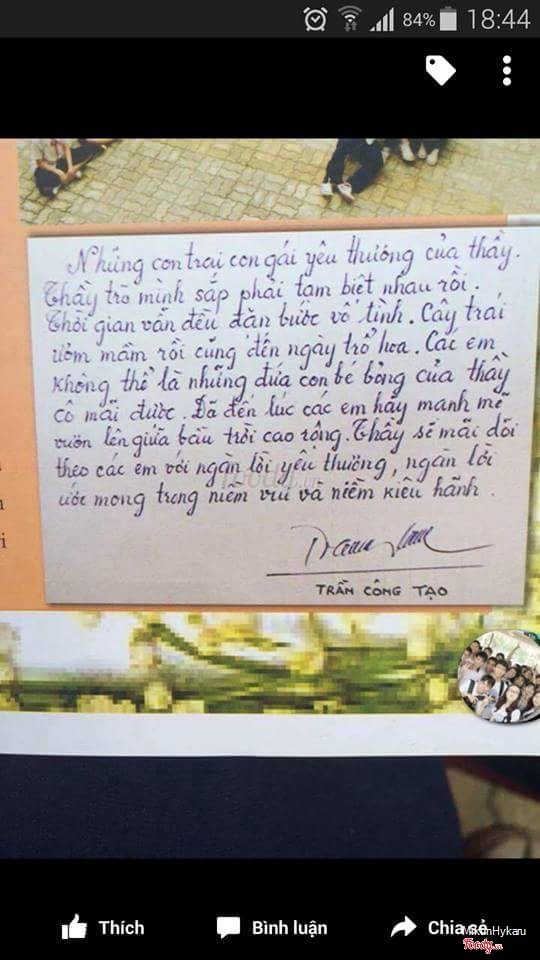 84% 18:44
Những con trai con gái yêu thương của thầy.
Thầy trò mình sắp phải tạm biệt nhau rồi.
Thời gian vẫn đều đặn bước vô tình. Cây trái
ươm mầm rồi cũng đến ngày trổ hoa. Các em
không thể là những đứa con bé bỏng của thầy
cô mãi được. Đã đến lúc các em hãy mạnh mẽ
vươn lên giữa bầu trời cao rộng. Thầy sẽ mãi dõi
theo các em với ngàn lời yêu thương, ngàn lời
ước mong trong niềm vui và niềm kiêu hãnh.
foody.vn
TRẦN CÔNG TẠO
i
Thích Bình luận Chia sẻ
MikunHykaru
Foody.vn